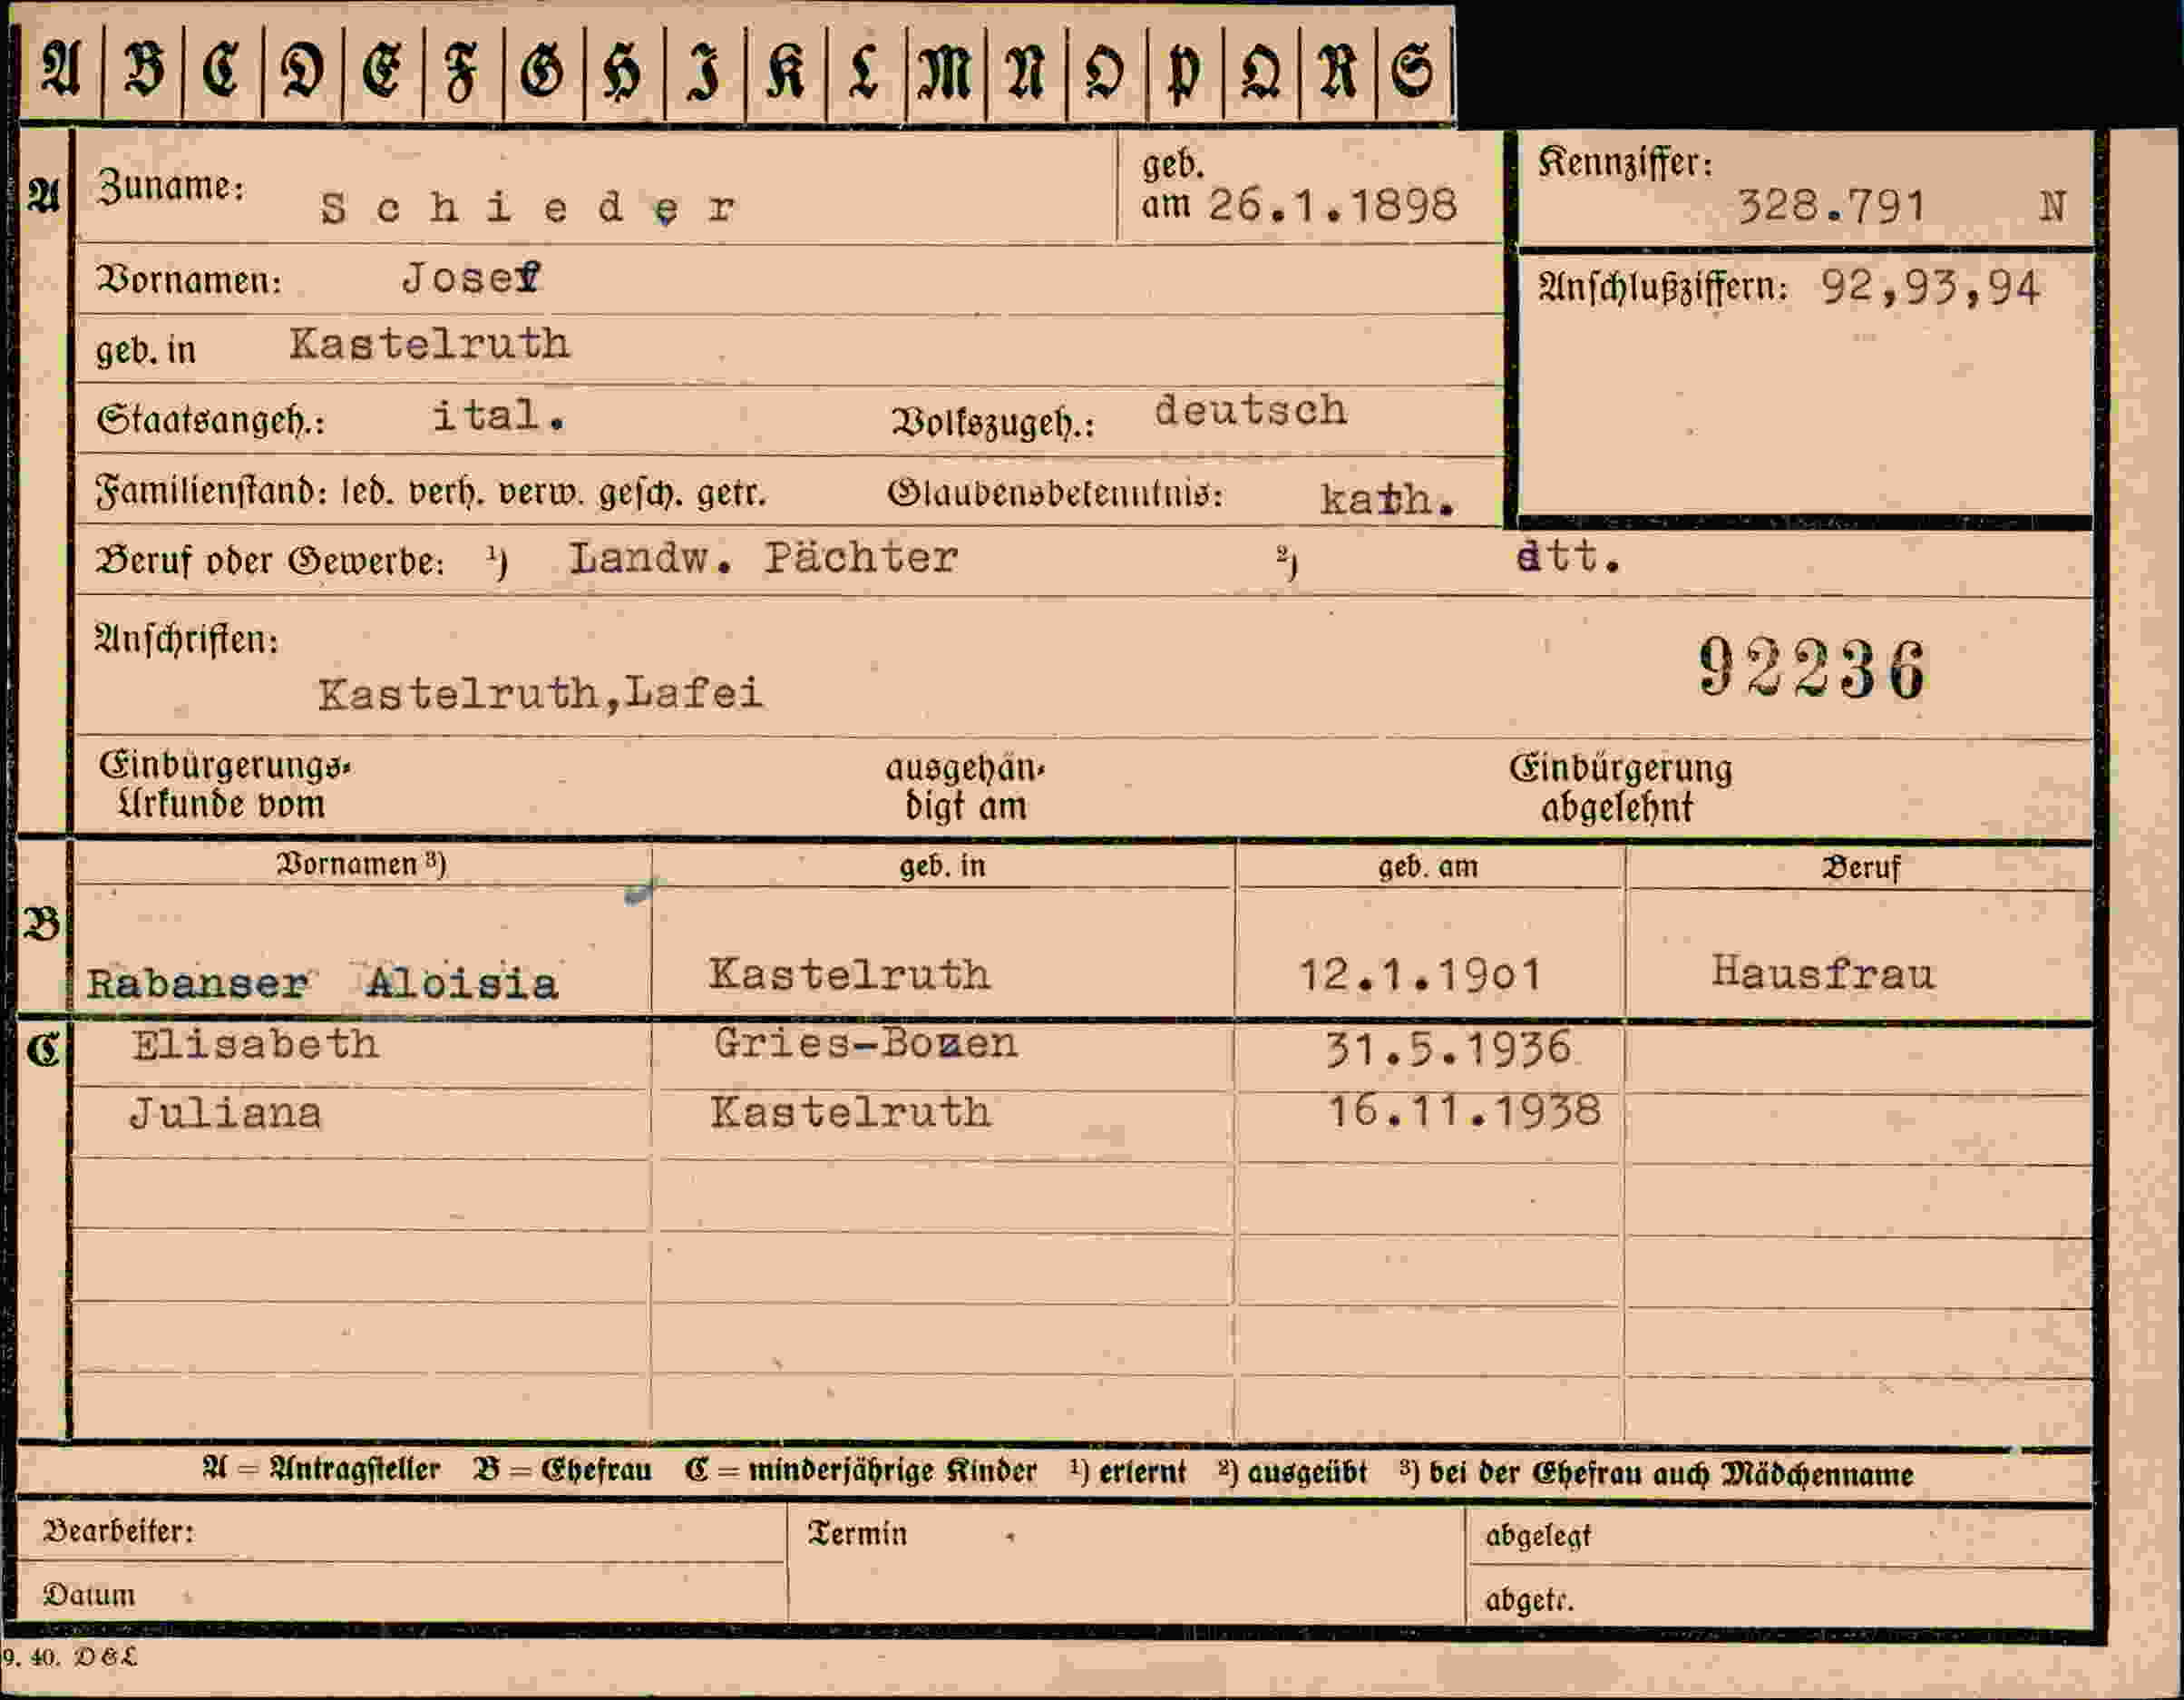 A B C D E F G H I K L M N O P Q R S
A Zuname: Schieder geb. am 26.1.1898 Kennziffer: 328.791 N
Vornamen: Josef Anschlußziffern: 92,93,94
geb. in Kastelruth
Staatsangeh.: ital. Volkszugeh.: deutsch
Familienstand: led. verh. verw. gesch. getr. Glaubensbekenntnis: kath.
Beruf oder Gewerbe: ¹) Landw. Pächter ²) dtt.
Anschriften: 92236
Kastelruth,Lafei
Einbürgerungs- ausgehän- Einbürgerung
Urkunde vom digt am abgelehnt
Vornamen ³) geb. in geb. am Beruf
B
Rabanser Aloisia Kastelruth 12.1.19o1 Hausfrau
C Elisabeth Gries-Bozen 31.5.1936
Juliana Kastelruth 16.11.1938
A = Antragsteller B = Ehefrau C = minderjährige Kinder ¹) erlernt ²) ausgeübt ³) bei der Ehefrau auch Mädchenname
Bearbeiter: Termin abgelegt
Datum abgetr.
9. 40. D&L